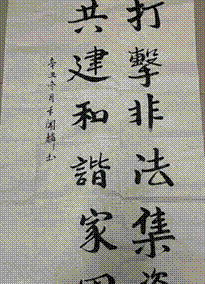 打擊非法集資
共建和諧家園
辛丑年月王開麟书